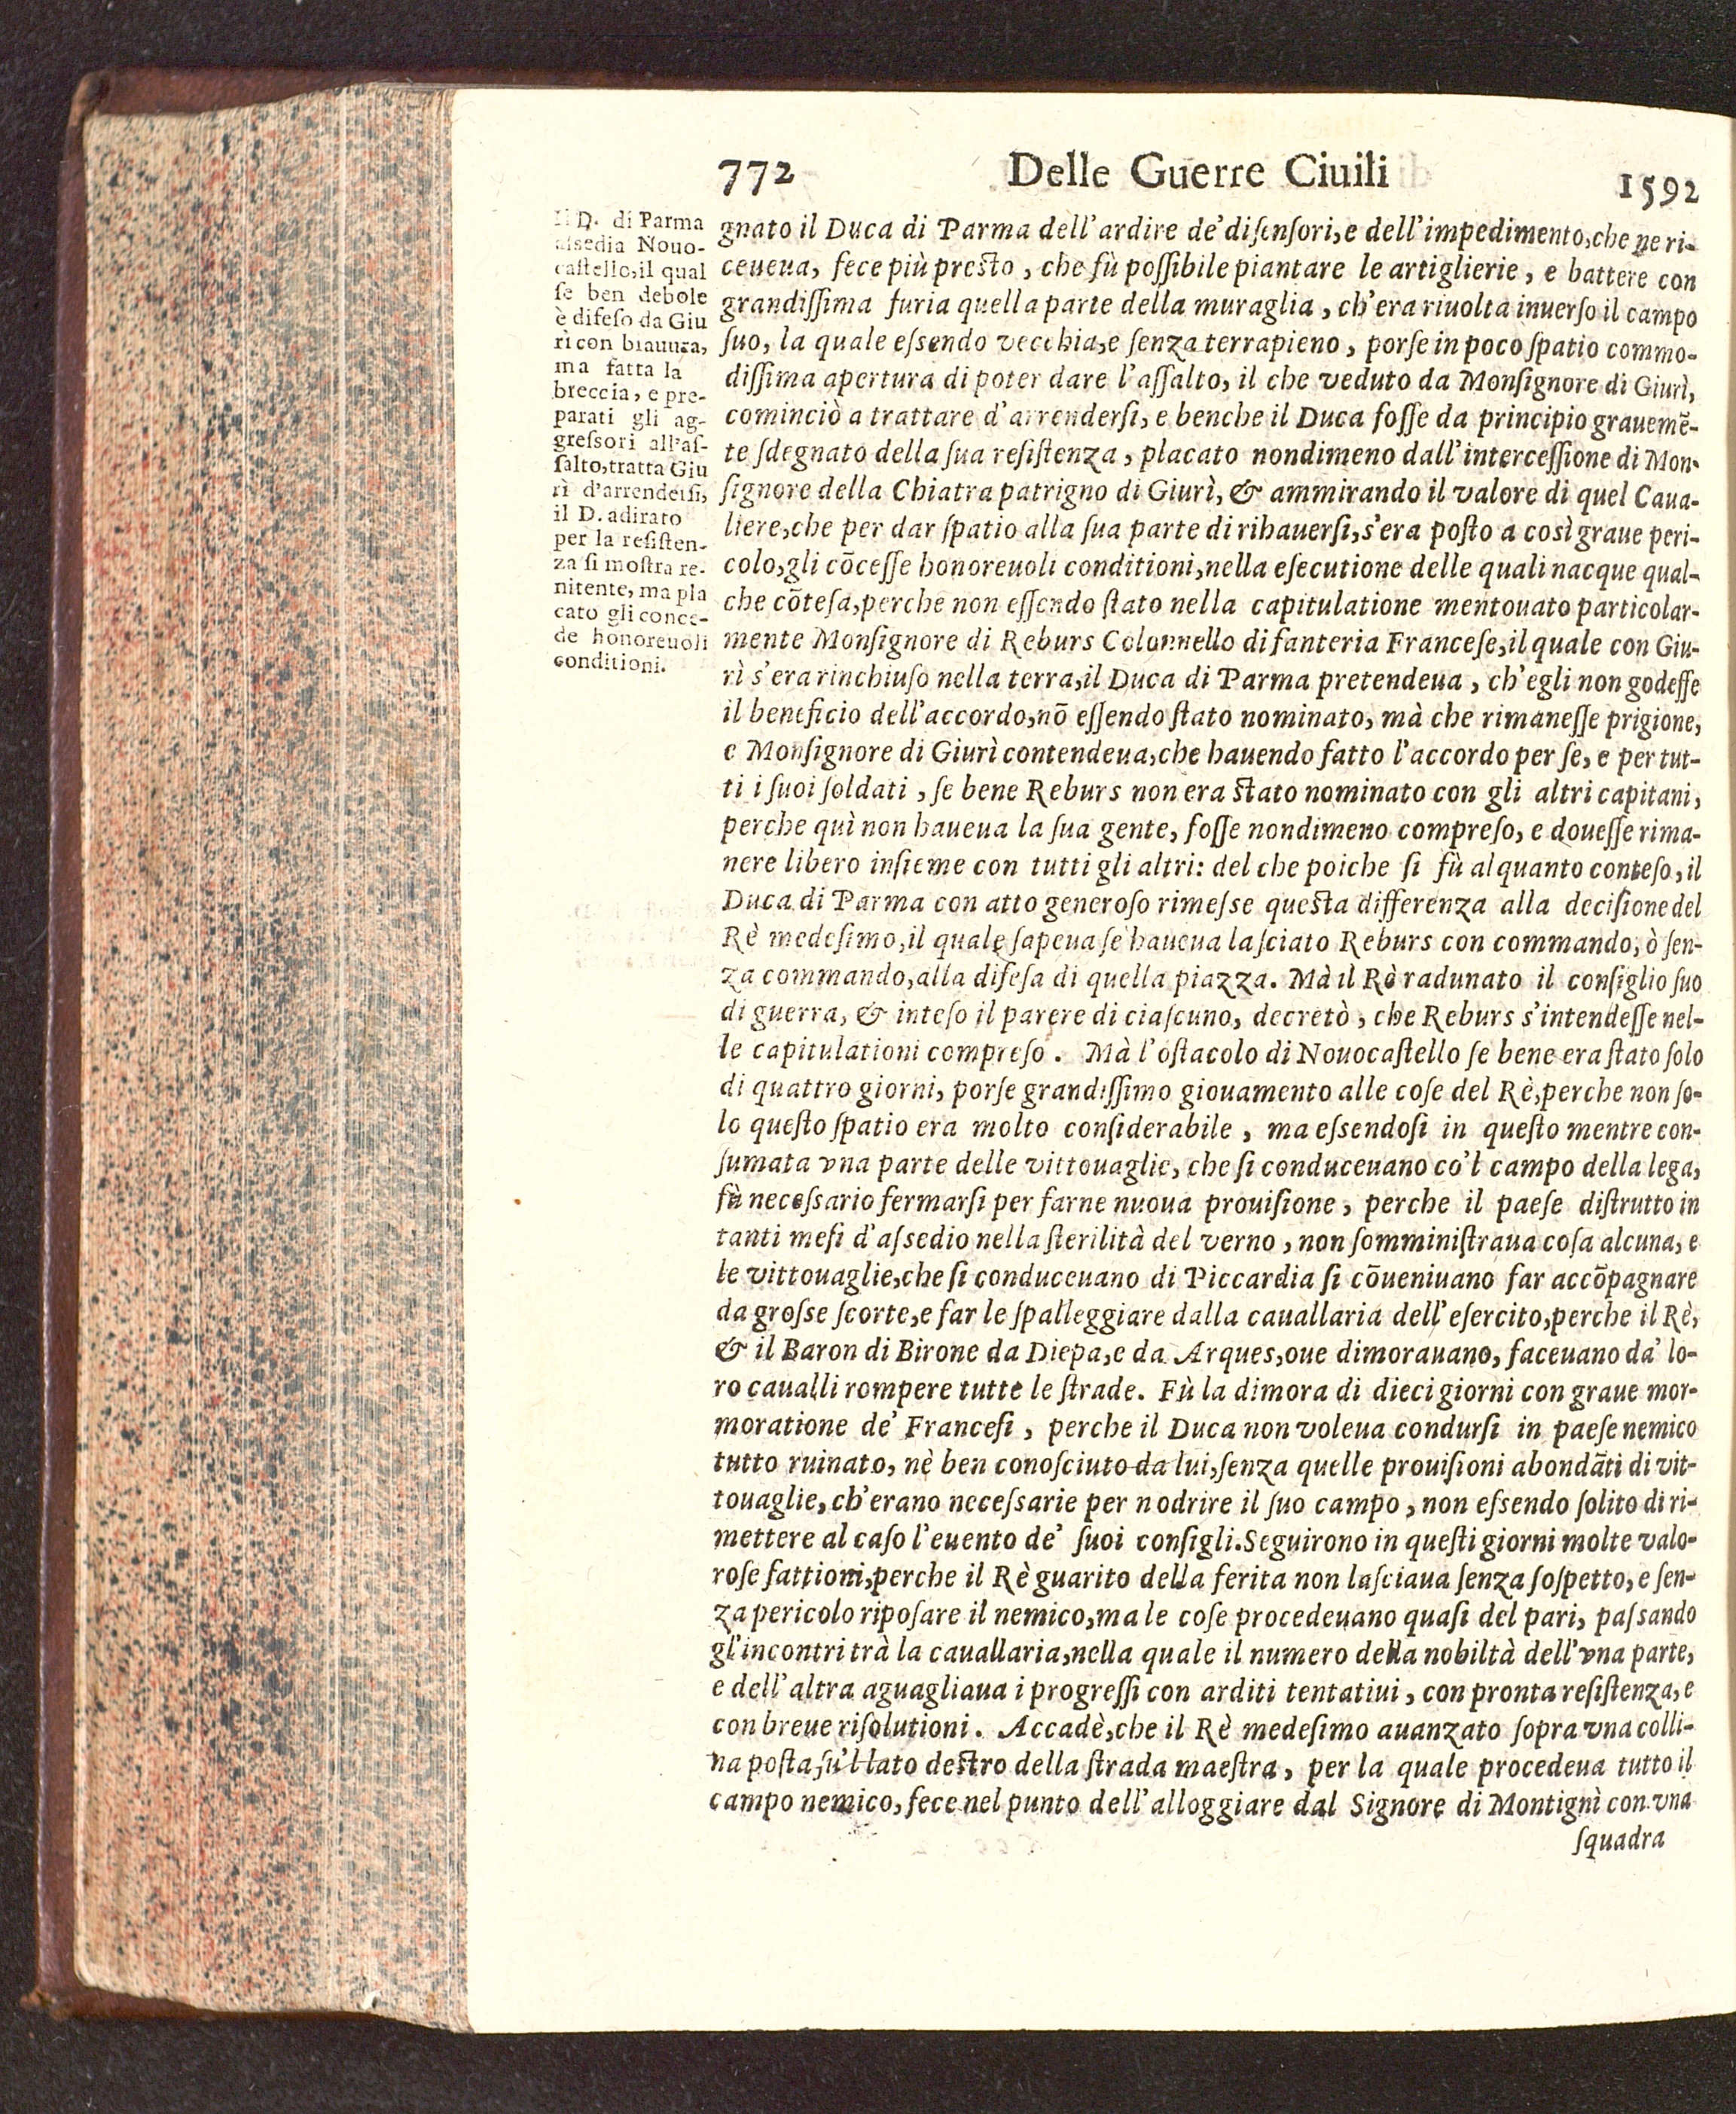 772 Delle Guerre Ciuili 1592
Il D. di Parma
assedia Nouo-
castello, il qual
se ben debole
è difeso da Giu
rì con brauura,
ma fatta la
breccia, e pre-
parati gli ag-
gressori all'as-
salto, tratta Giu
rì d'arrendersi,
il D. adirato
per la resisten-
za si mostra re-
nitente, ma pla
cato gli conce-
de honoreuoli
conditioni.
gnato il Duca di Parma dell'ardire de' difensori, e dell'impedimento, che ne ri-
ceueua, fece più presto, che fù possibile piantare le artiglierie, e battere con
grandissima furia quella parte della muraglia, ch'era riuolta inuerso il campo
suo, la quale essendo vecchia, e senza terrapieno, porse in poco spatio commo-
dissima apertura di poter dare l'assalto, il che veduto da Monsignore di Giurì,
cominciò a trattare d'arrendersi, e benche il Duca fosse da principio grauemẽ-
te sdegnato della sua resistenza, placato nondimeno dall'intercessione di Mon-
signore della Chiatra patrigno di Giurì, & ammirando il valore di quel Caua-
liere, che per dar spatio alla sua parte di rihauersi, s'era posto a così graue peri-
colo, gli cõcesse honoreuoli conditioni, nella esecutione delle quali nacque qual-
che cõtesa, perche non essendo stato nella capitulatione mentouato particolar-
mente Monsignore di Reburs Colonnello di fanteria Francese, il quale con Giu-
rì s'era rinchiuso nella terra, il Duca di Parma pretendeua, ch'egli non godesse
il beneficio dell'accordo, nõ essendo stato nominato, mà che rimanesse prigione,
e Monsignore di Giurì contendeua, che hauendo fatto l'accordo per se, e per tut-
ti i suoi soldati, se bene Reburs non era stato nominato con gli altri capitani,
perche quì non haueua la sua gente, fosse nondimeno compreso, e douesse rima-
nere libero insieme con tutti gli altri: del che poiche si fù alquanto conteso, il
Duca di Parma con atto generoso rimesse questa differenza alla decisione del
Rè medesimo, il quale sapeua se haueua lasciato Reburs con commando, ò sen-
za commando, alla difesa di quella piazza. Mà il Rè radunato il consiglio suo
di guerra, & inteso il parere di ciascuno, decretò, che Reburs s'intendesse nel-
le capitulationi compreso. Mà l'ostacolo di Nouocastello se bene era stato solo
di quattro giorni, porse grandissimo giouamento alle cose del Rè, perche non so-
lo questo spatio era molto considerabile, ma essendosi in questo mentre con-
sumata vna parte delle vittouaglie, che si conduceuano co'l campo della lega,
fù necessario fermarsi per farne nuoua prouisione, perche il paese distrutto in
tanti mesi d'assedio nella sterilità del verno, non somministraua cosa alcuna, e
le vittouaglie, che si conduceuano di Piccardia si cõueniuano far accõpagnare
da grosse scorte, e farle spalleggiare dalla cauallaria dell'esercito, perche il Rè,
& il Baron di Birone da Diepa, e da Arques, oue dimorauano, faceuano da' lo-
ro caualli rompere tutte le strade. Fù la dimora di dieci giorni con graue mor-
moratione de' Francesi, perche il Duca non voleua condursi in paese nemico
tutto ruinato, nè ben conosciuto da lui, senza quelle prouisioni abondãti di vit-
touaglie, ch'erano necessarie per nodrire il suo campo, non essendo solito di ri-
mettere al caso l'euento de' suoi consigli. Seguirono in questi giorni molte valo-
rose fattioni, perche il Rè guarito della ferita non lasciaua senza sospetto, e sen-
za pericolo riposare il nemico, ma le cose procedeuano quasi del pari, passando
gl'incontri trà la cauallaria, nella quale il numero della nobiltà dell'vna parte,
e dell'altra aguagliaua i progressi con arditi tentatiui, con pronta resistenza, e
con breue risolutioni. Accadè, che il Rè medesimo auanzato sopra vna colli-
na posta su'l lato destro della strada maestra, per la quale procedeua tutto il
campo nemico, fece nel punto dell'alloggiare dal Signore di Montignì con vna
squadra